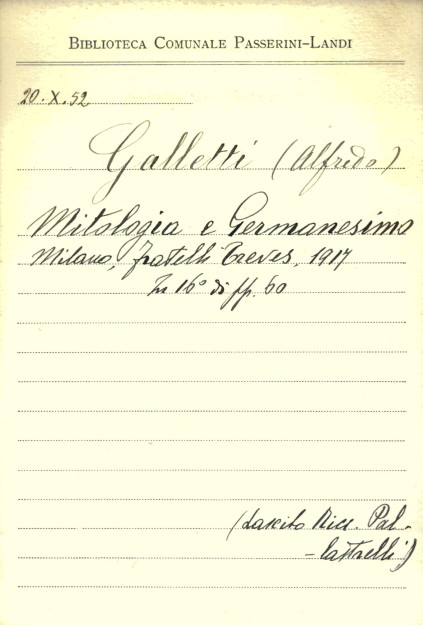 BIBLIOTECA COMUNALE PASSERINI-LANDI
20.X.52
Galletti (Alfredo)
Mitologia e Germanesimo
Milano, Fratelli Treves, 1917
In 16° di pp. 60
(Lascito Ricc. Pal-
-lastrelli)